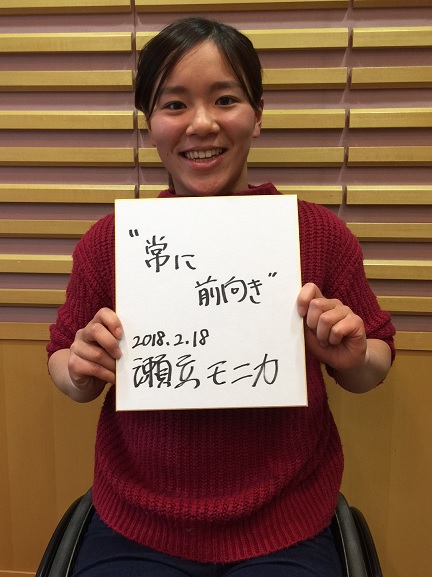 "常に
前向き"
2018.2.18
瀬立モニカ